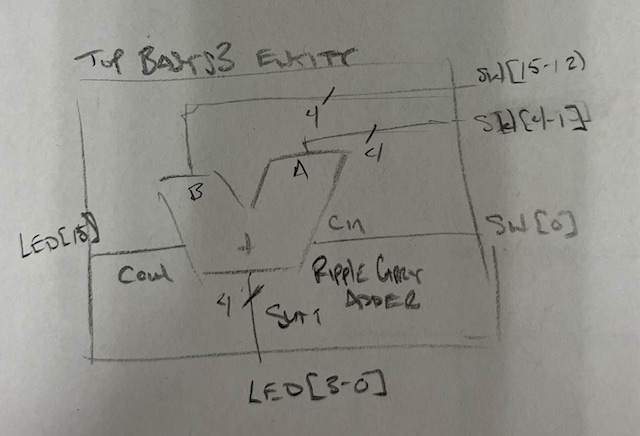 TOP BASYS3 ENTITY
SW[15-12)
4
SW[4-1]
4
A
B
Cin
SW[0]
LED[15]
+
Cout
RIPPLE CARRY
ADDER
4
SUM
LED[3-0]